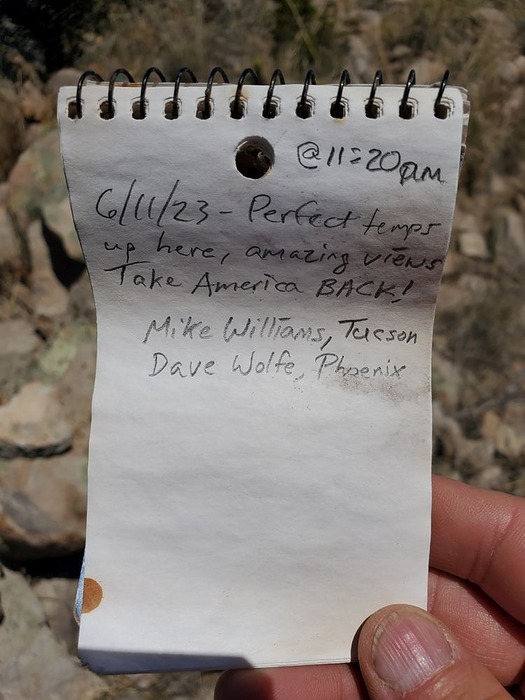 @ 11:20am
6/11/23 - Perfect temps
up here, amazing views
Take America BACK!
Mike Williams, Tucson
Dave Wolfe, Phoenix